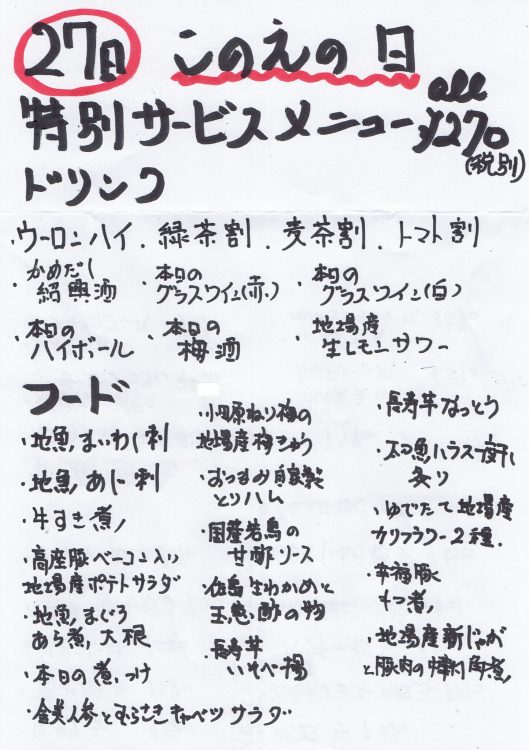 27日 このえの日
特別サービスメニュー all ¥270
(税別)
ドリンク
・ウーロンハイ ・緑茶割 ・麦茶割 ・トマト割
・かめだし
紹興酒
・本日の
グラスワイン(赤)
・本日の
グラスワイン(白)
・本日の
ハイボール
・本日の
梅酒
地場産
・生レモンサワー
フード
・地魚、まいわし刺
・地魚、あじ刺
・牛すき煮
・高座豚ベーコン入り
地場産ポテトサラダ
・地魚、まぐろ
あら煮、大根
・本日の煮つけ
・金美人参とむらさきキャベツサラダ
・小田原ねり梅の
地場産梅きゅう
・おつまみ自家製
とりハム
・国産若鳥の
甘酢ソース
・生わかめと
玉葱の酢の物
・長寿芋
いそべ揚
・長寿芋なっとう
魚ハラス一夜干し
炙り
・ゆでたて地場産
カリフラワー2種
・幸福豚
もつ煮
・地場産新じゃが
と豚肉の角煮